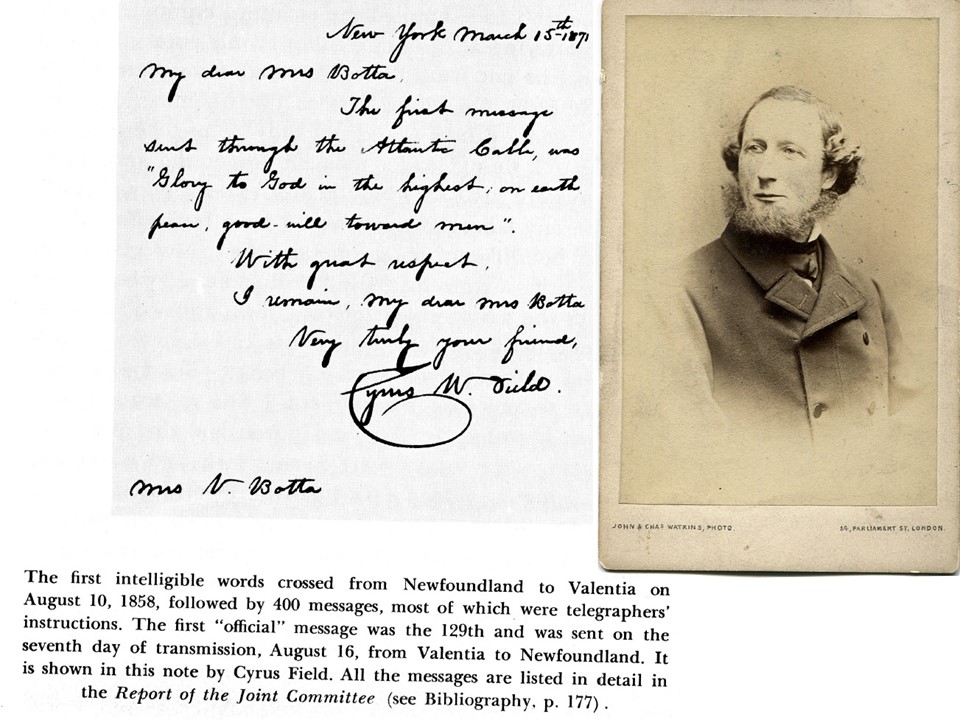 New York March 15th 1871
My dear Mrs Botta,
The first message
sent through the Atlantic Cable, was
"Glory to God in the highest, on earth
peace, good-will toward men".
With great respect,
I remain, my dear Mrs Botta
Very truly your friend,
Cyrus W. Field.
Mrs V. Botta
JOHN & CHAS WATKINS, PHOTO.
34, PARLIAMENT ST. LONDON.
The first intelligible words crossed from Newfoundland to Valentia on
August 10, 1858, followed by 400 messages, most of which were telegraphers'
instructions. The first "official" message was the 129th and was sent on the
seventh day of transmission, August 16, from Valentia to Newfoundland. It
is shown in this note by Cyrus Field. All the messages are listed in detail in
the Report of the Joint Committee (see Bibliography, p. 177).